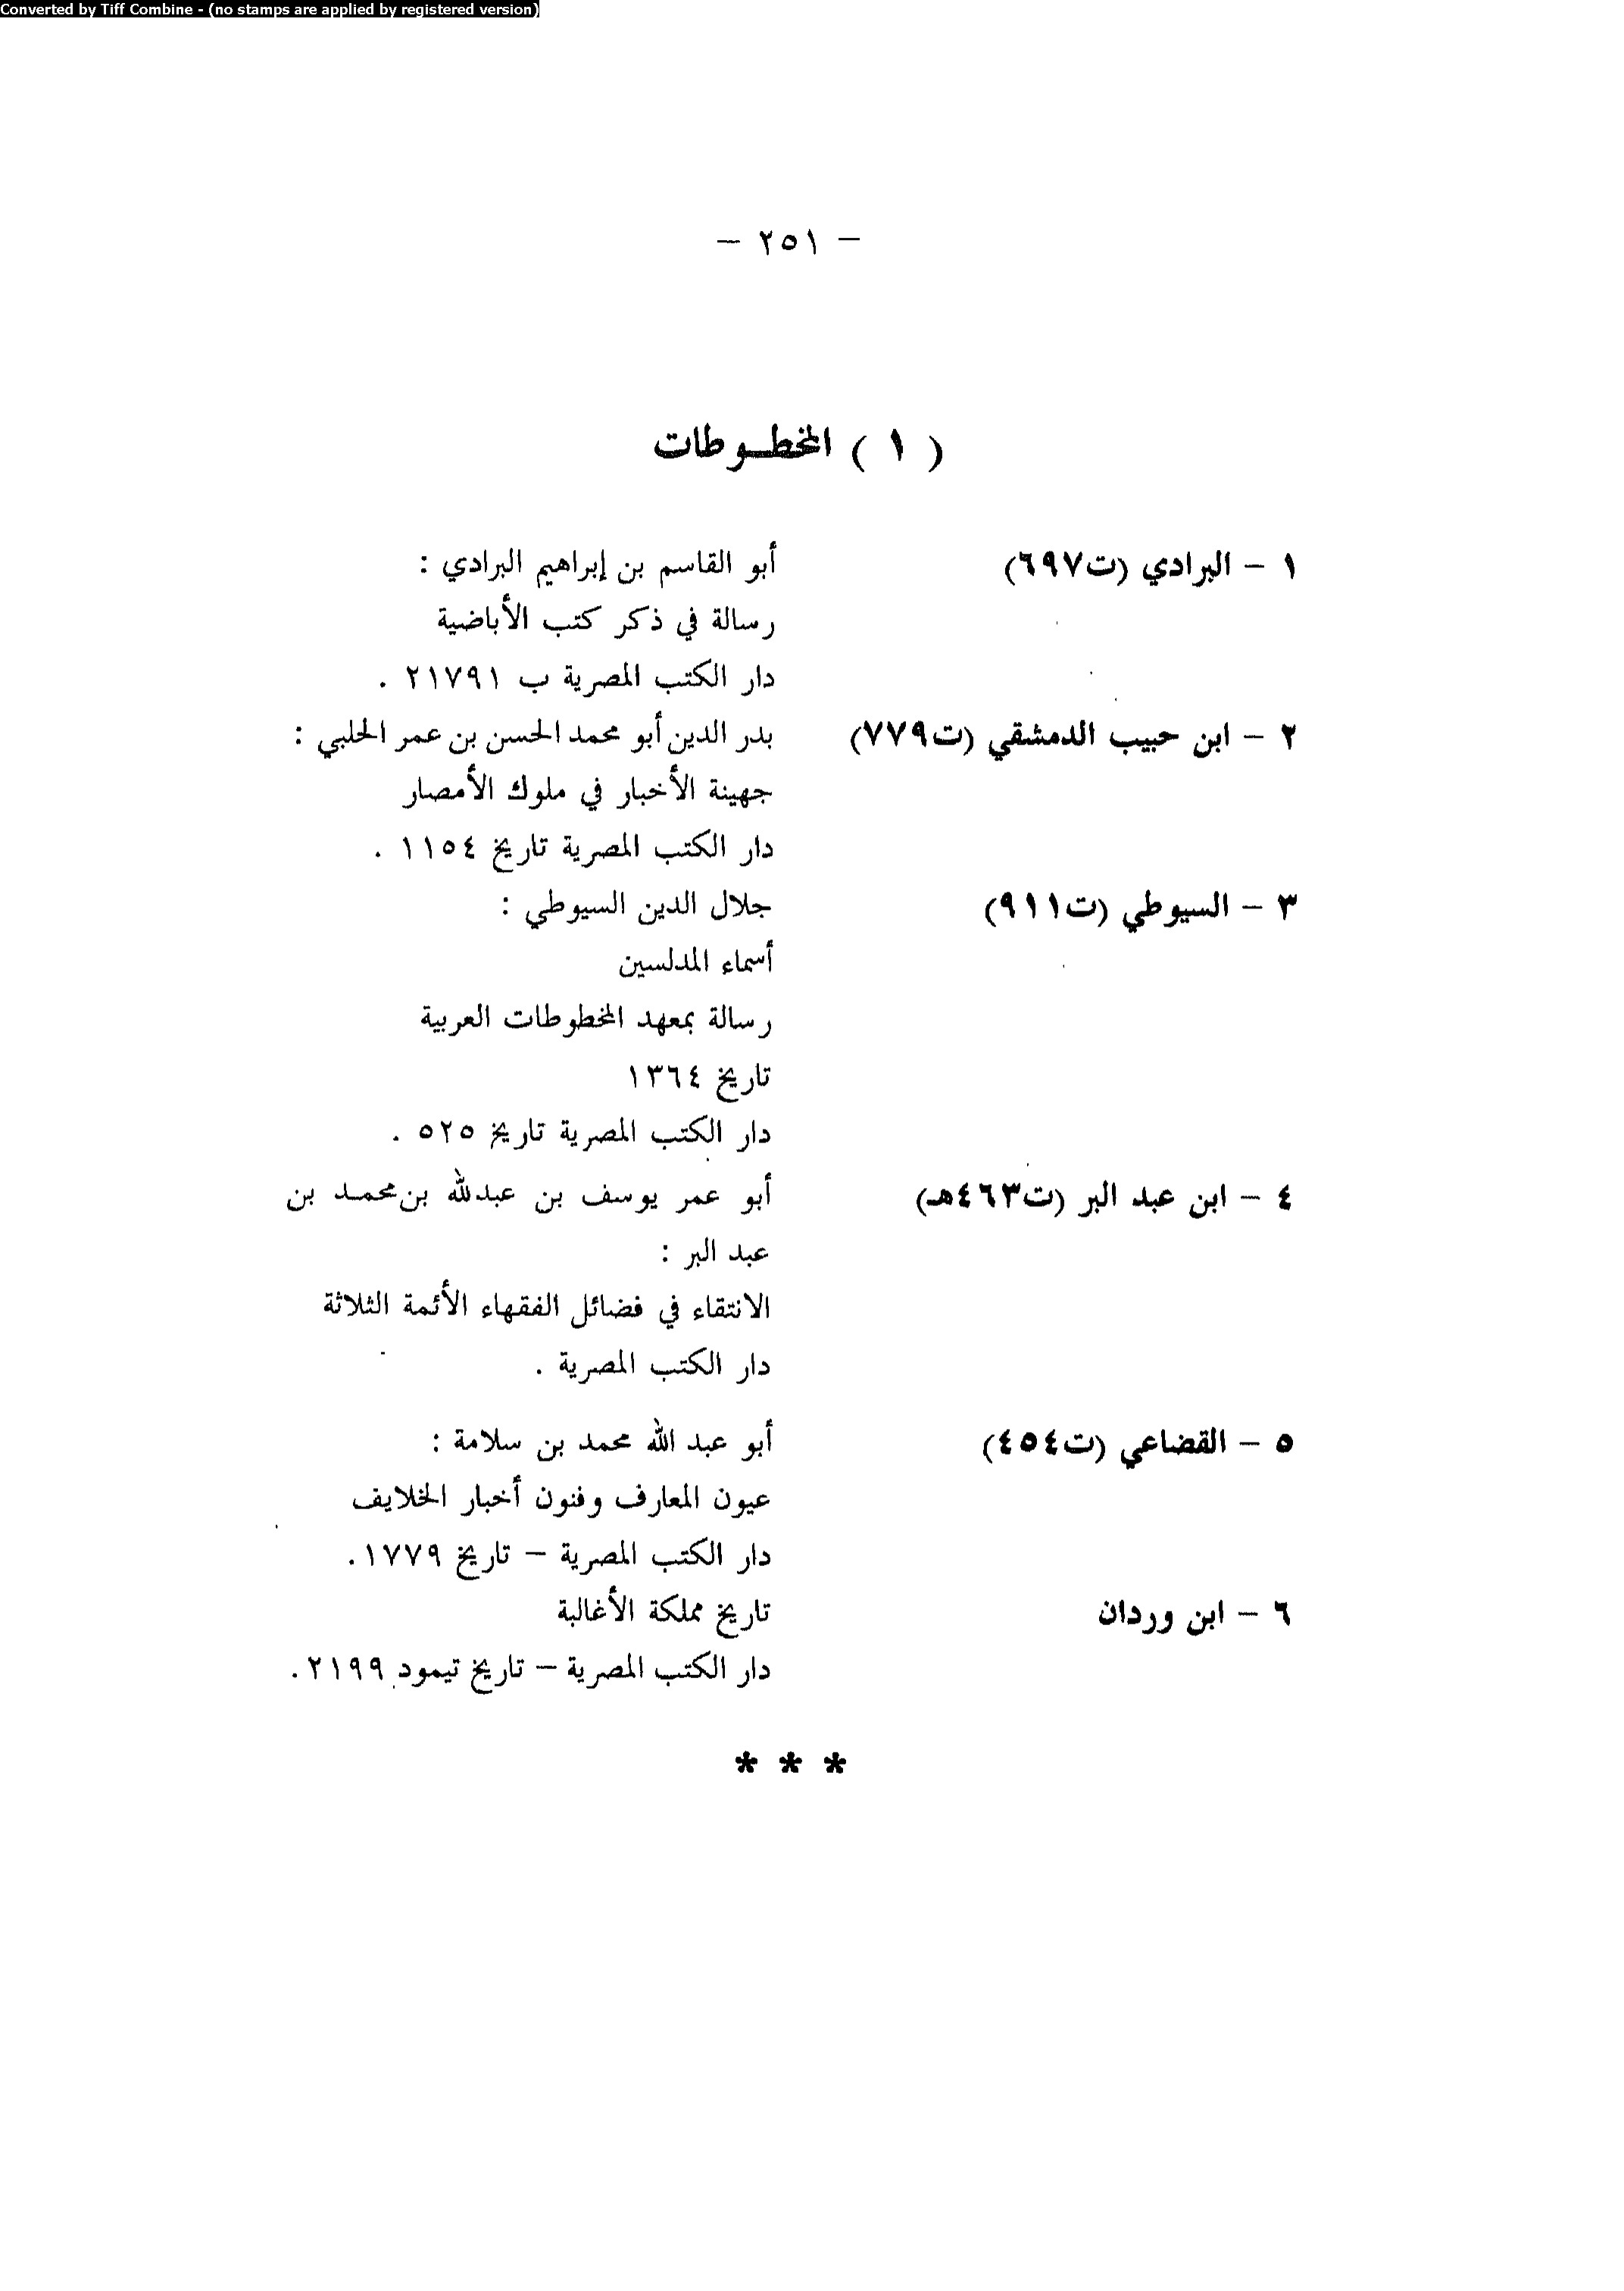 Converted by Tiff Combine - (no stamps are applied by registered version)
– ٢٥١ –
( ١ ) المخطوطات
١ – البرادي (ت٦٩٧) أبو القاسم بن إبراهيم البرادي :
رسالة في ذكر كتب الأباضية
دار الكتب المصرية ب ٢١٧٩١ .
٢ – ابن حبيب الدمشقي (ت٧٧٩) بدر الدين أبو محمد الحسن بن عمر الحلبي :
جهينة الأخبار في ملوك الأمصار
دار الكتب المصرية تاريخ ١١٥٤ .
٣ – السيوطي (ت٩١١) جلال الدين السيوطي :
أسماء المدلسين
رسالة بمعهد المخطوطات العربية
تاريخ ١٣٦٤
دار الكتب المصرية تاريخ ٥٢٥ .
٤ – ابن عبد البر (ت٤٦٣هـ) أبو عمر يوسف بن عبدلله بن محمد بن
عبد البر :
الانتقاء في فضائل الفقهاء الأئمة الثلاثة
دار الكتب المصرية .
٥ – القضاعي (ت٤٥٤) أبو عبد الله محمد بن سلامة :
عيون المعارف وفنون أخبار الخلايف
دار الكتب المصرية – تاريخ ١٧٧٩.
٦ – ابن وردان تاريخ مملكة الأغالبة
دار الكتب المصرية – تاريخ تيمود ٢١٩٩.
* * *